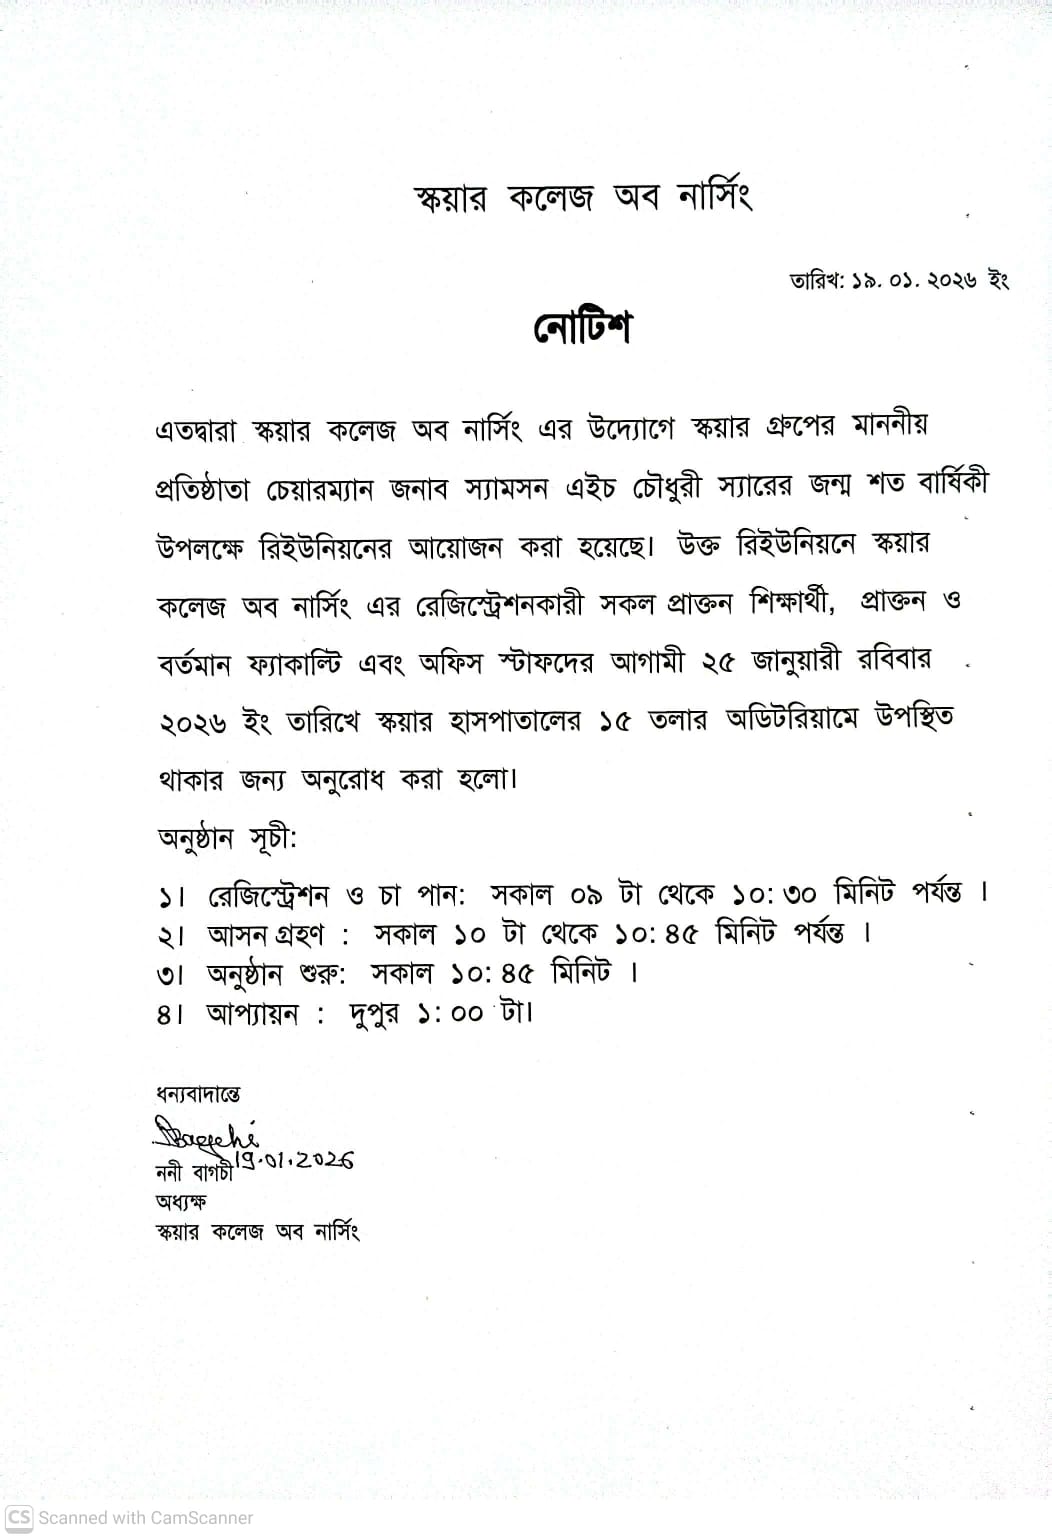 স্কয়ার কলেজ অব নার্সিং
তারিখ: ১৯. ০১. ২০২৬ ইং
নোটিশ
এতদ্বারা স্কয়ার কলেজ অব নার্সিং এর উদ্যোগে স্কয়ার গ্রুপের মাননীয়
প্রতিষ্ঠাতা চেয়ারম্যান জনাব স্যামসন এইচ চৌধুরী স্যারের জন্ম শত বার্ষিকী
উপলক্ষে রিইউনিয়নের আয়োজন করা হয়েছে। উক্ত রিইউনিয়নে স্কয়ার
কলেজ অব নার্সিং এর রেজিস্ট্রেশনকারী সকল প্রাক্তন শিক্ষার্থী, প্রাক্তন ও
বর্তমান ফ্যাকাল্টি এবং অফিস স্টাফদের আগামী ২৫ জানুয়ারী রবিবার
২০২৬ ইং তারিখে স্কয়ার হাসপাতালের ১৫ তলার অডিটরিয়ামে উপস্থিত
থাকার জন্য অনুরোধ করা হলো।
অনুষ্ঠান সূচী:
১। রেজিস্ট্রেশন ও চা পান: সকাল ০৯ টা থেকে ১০: ৩০ মিনিট পর্যন্ত ।
২। আসন গ্রহণ : সকাল ১০ টা থেকে ১০: ৪৫ মিনিট পর্যন্ত ।
৩। অনুষ্ঠান শুরু: সকাল ১০: ৪৫ মিনিট ।
৪। আপ্যায়ন : দুপুর ১: ০০ টা।
ধন্যবাদান্তে
Bagchi
19.01.2026
ননী বাগচী
অধ্যক্ষ
স্কয়ার কলেজ অব নার্সিং
CS Scanned with CamScanner